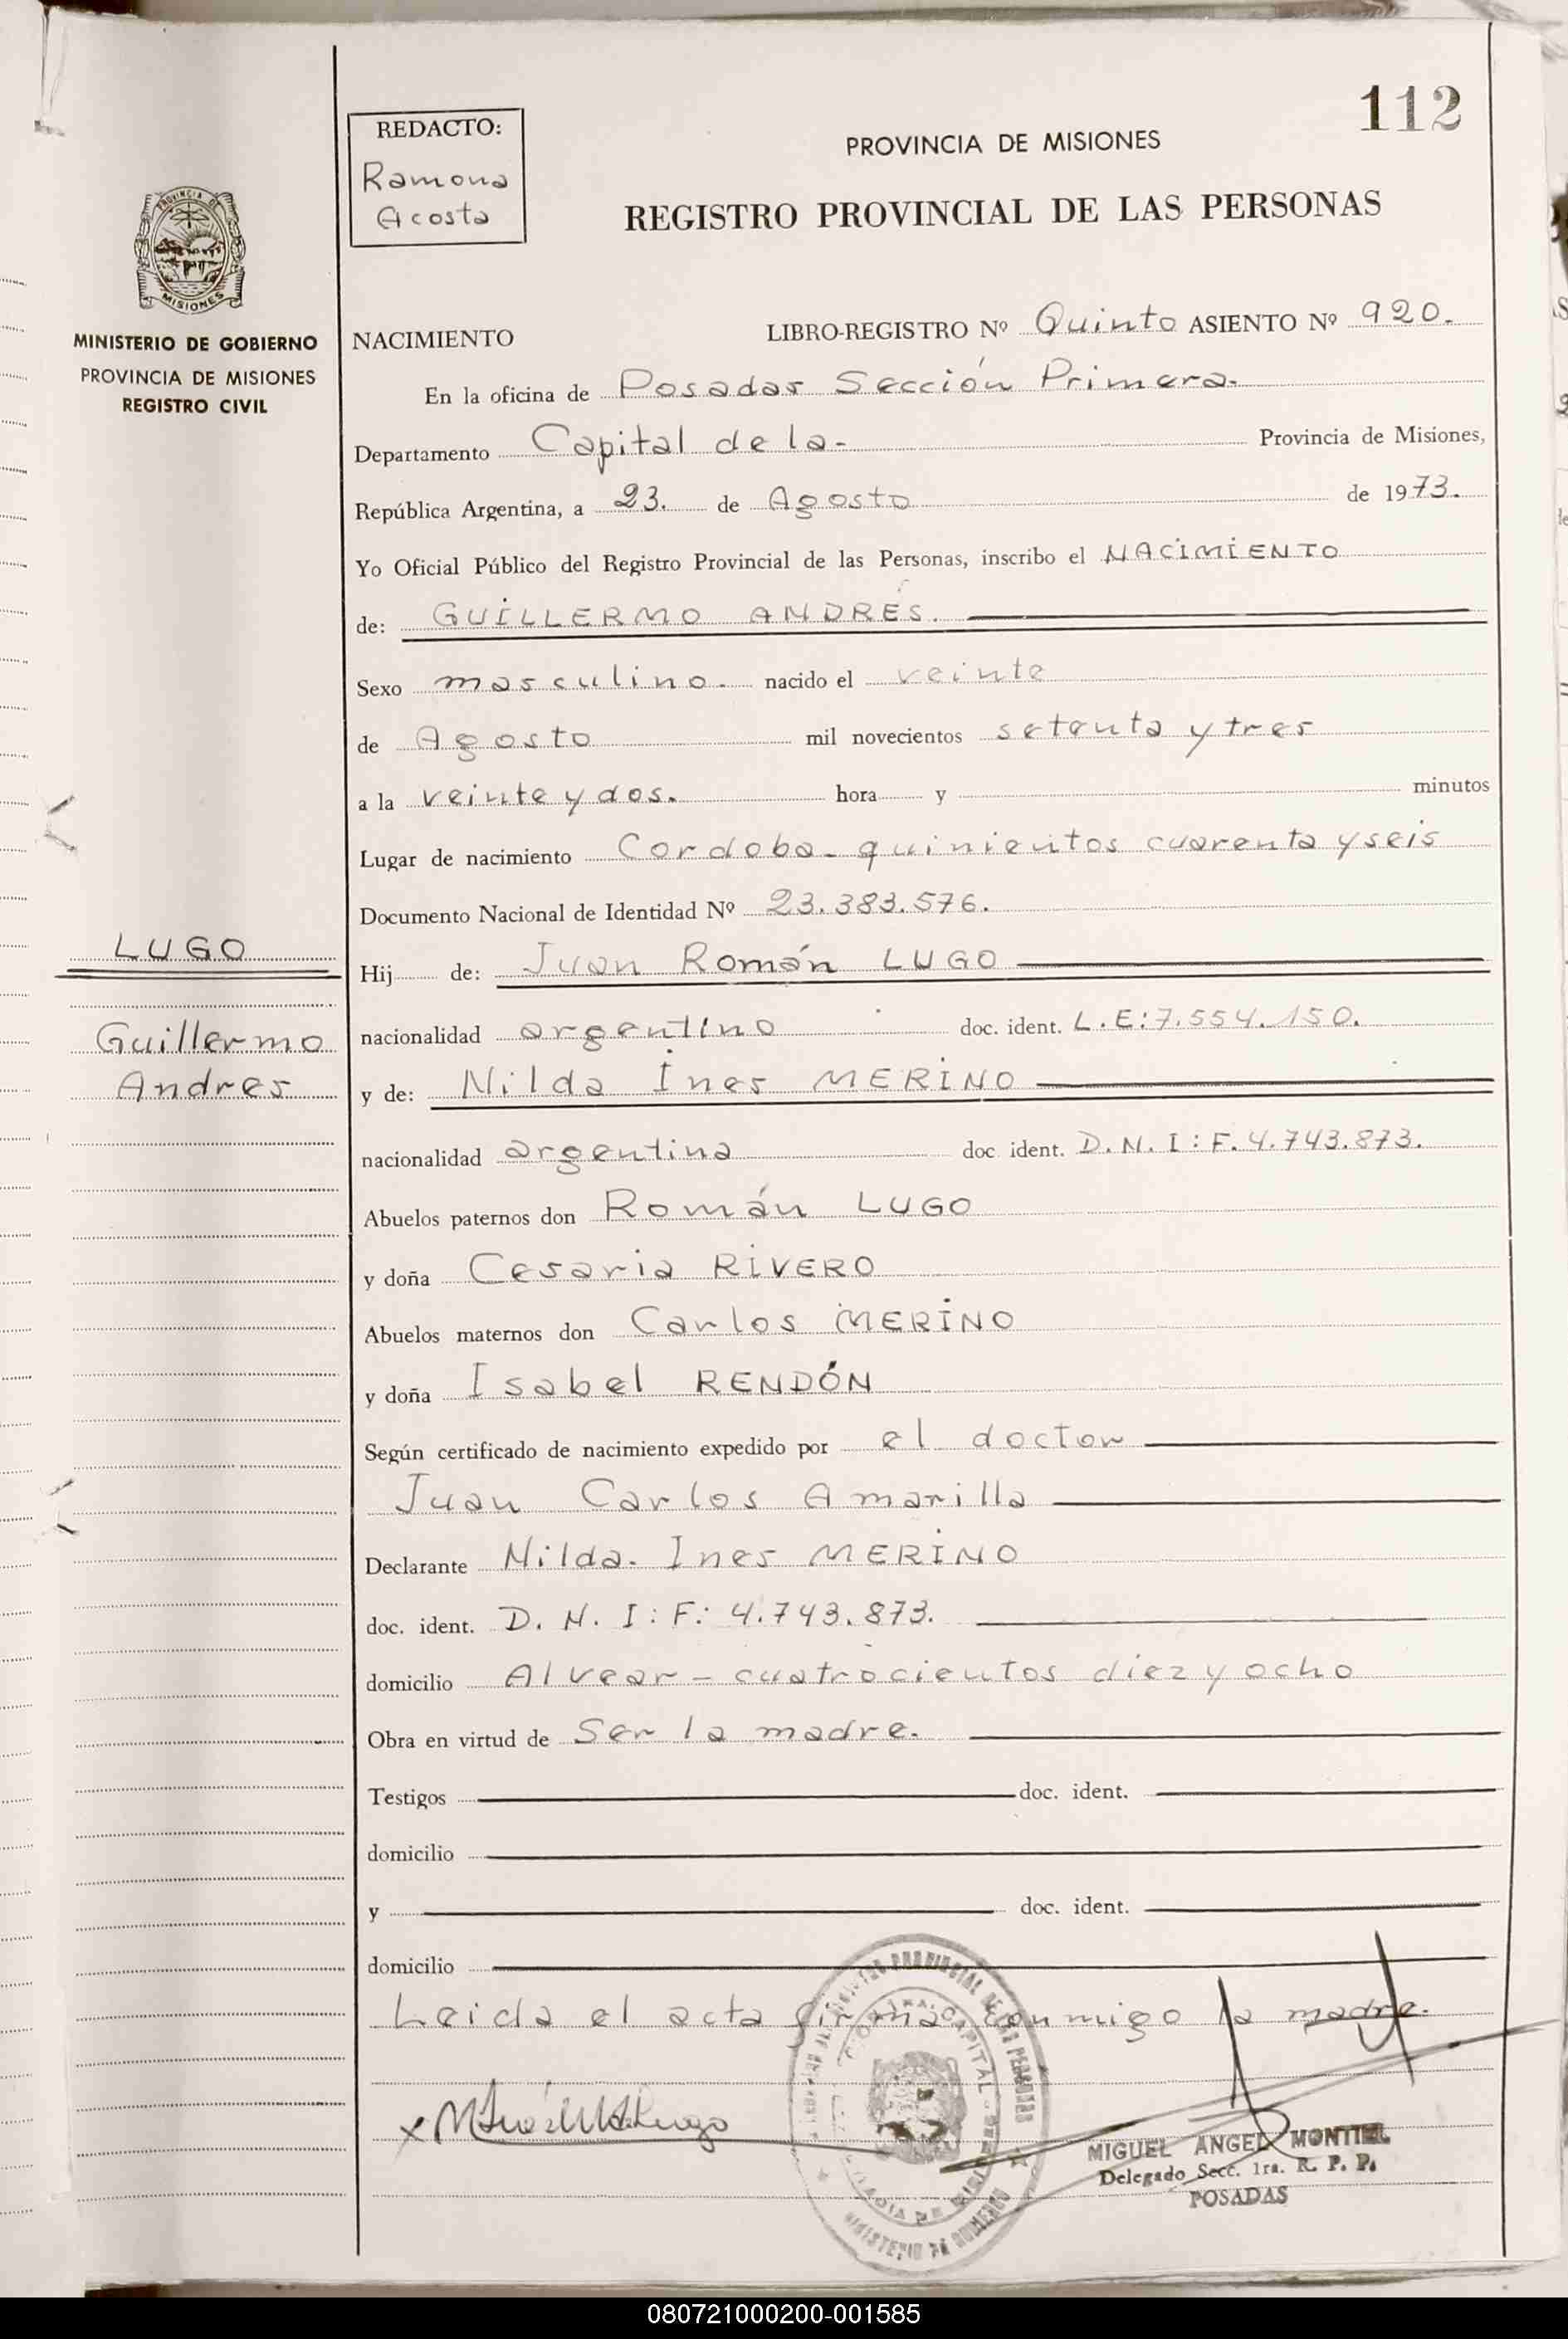 112
REDACTO:
Ramona
Acosta
PROVINCIA DE MISIONES
REGISTRO PROVINCIAL DE LAS PERSONAS
PROVINCIA DE
MISIONES
MINISTERIO DE GOBIERNO
PROVINCIA DE MISIONES
REGISTRO CIVIL
NACIMIENTO LIBRO-REGISTRO Nº Quinto ASIENTO Nº 920.
En la oficina de Posadas Sección Primera.
Departamento Capital de la- Provincia de Misiones,
República Argentina, a 23. de Agosto de 1973.
Yo Oficial Público del Registro Provincial de las Personas, inscribo el NACIMIENTO
de: GUILLERMO ANDRÉS.
Sexo masculino. nacido el veinte
de Agosto mil novecientos setenta y tres
a la veinte y dos. hora y minutos
Lugar de nacimiento Cordoba- quinientos cuarenta y seis
Documento Nacional de Identidad Nº 23.383.576.
LUGO
Guillermo
Andres
Hij de: Juan Román LUGO
nacionalidad argentino doc. ident. L.E:7.554.150.
y de: Nilda Ines MERINO
nacionalidad argentina doc ident. D.N.I:F.4.743.873.
Abuelos paternos don Román LUGO
y doña Cesaria RIVERO
Abuelos maternos don Carlos MERINO
y doña Isabel RENDÓN
Según certificado de nacimiento expedido por el doctor
Juan Carlos Amarilla
Declarante Nilda. Ines MERINO
doc. ident. D.N.I:F: 4.743.873.
domicilio Alvear - cuatrocientos diez y ocho
Obra en virtud de Ser la madre.
Testigos doc. ident.
domicilio
y doc. ident.
domicilio
Leida el acta firma conmigo la madre.
MIGUEL ANGEL MONTIEL
Delegado Secc. 1ra. R. P. P.
POSADAS
080721000200-001585